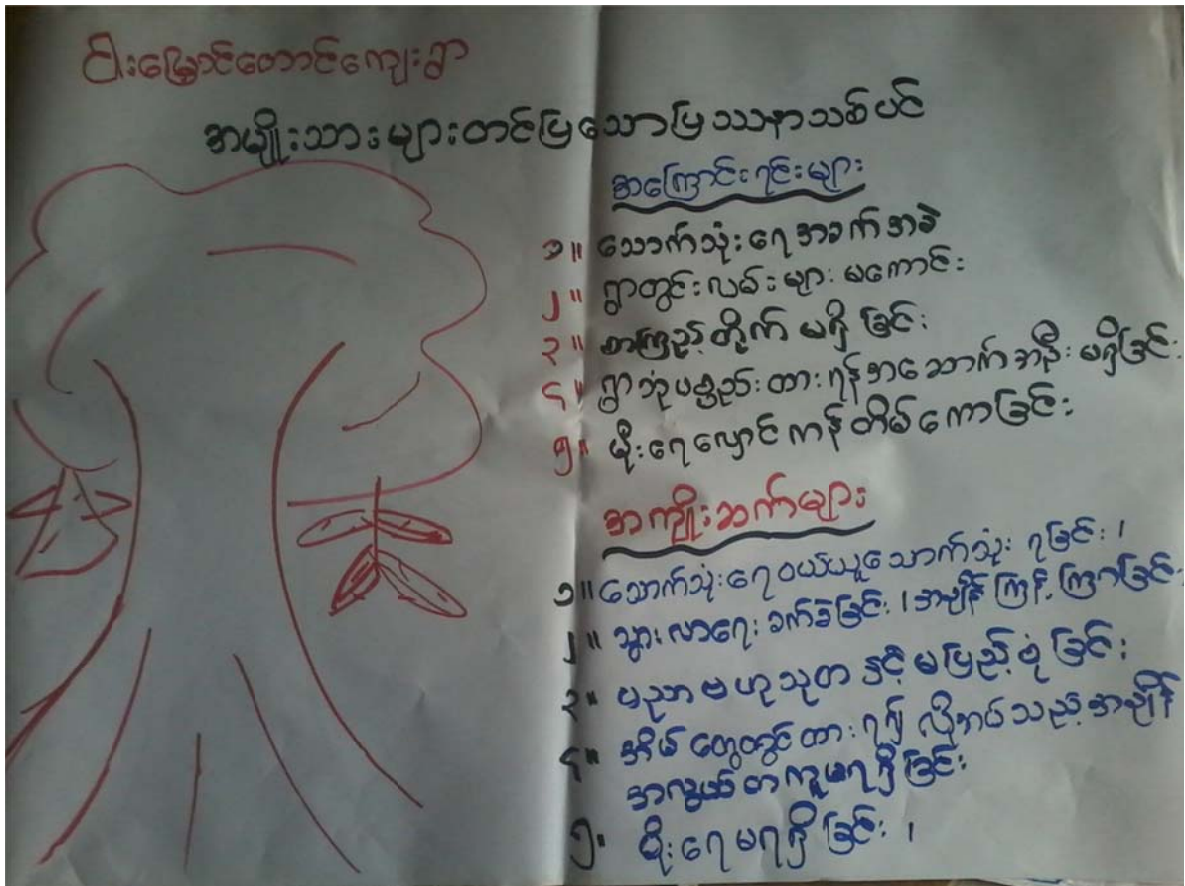 ငါးမြှောင်တောင်ကျေးရွာ
အမျိုးသားများတင်ပြသောပြဿနာသစ်ပင်
အကြောင်းရင်းများ
၁။ သောက်သုံးရေအခက်အခဲ
၂။ ရွာတွင်းလမ်းများ မကောင်း
၃။ စာကြည့်တိုက် မရှိခြင်း
၄။ ရွာဘုံပစ္စည်းထားရန်အဆောက်အဦး မရှိခြင်း
၅။ မိုးရေလှောင်ကန်တိမ်ကောခြင်း
အကျိုးဆက်များ
၁။ သောက်သုံးရေဝယ်ယူသောက်သုံး ရခြင်း ၊
၂။ သွားလာရေး ခက်ခဲခြင်း ၊ အချိန်ကြန့်ကြာခြင်း
၃။ ပညာဗဟုသုတ နှင့် မပြည့်စုံခြင်း
၄။ အိမ်တွေတွင်ထား၍ လိုအပ်သည့်အချိန်
အလွယ်တကူမရရှိခြင်း
၅။ မိုးရေမရရှိခြင်း ၊